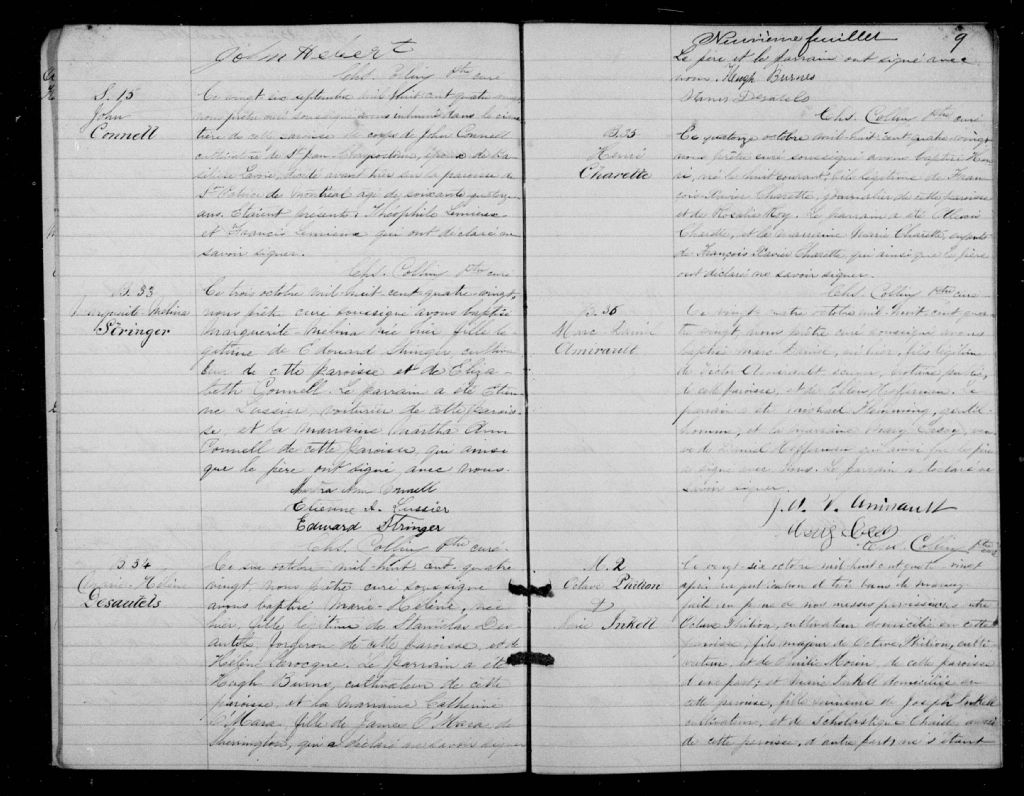 John Hebert
Chs. Collin Ptre curé
S. 15
John
Connell
Ce vingt six septembre mil huit cent quatre vingt
nous prêtre curé soussigné avons inhumé dans le cime-
tière de cette paroisse le corps de John Connell
cultivateur de St
décédé avant hier sur la paroisse de
St de Montréal agé de soixante quatorze
ans. Etaient présents: Théophile Lemieux
et Francis Lemieux qui ont déclaré ne
savoir signer.
Chs. Collin Ptre curé
B. 33
Marguerite Melina
Stringer
Ce trois octobre mil huit cent quatre-vingt,
nous prêtre curé soussigné avons baptisé
Marguerite Melina née hier fille lé-
gitime de Edouard Stringer, cultiva-
teur de cette paroisse et de Eliza-
beth Connell. Le parrain a été Etien-
ne Lussier, voiturier de cette parois-
se, et la marraine Martha Ann
Connell de cette paroisse, qui ainsi
que le père ont signé avec nous.
Martha Ann Connell
Etienne A. Lussier
Edward Stringer
Chs. Collin Ptre curé.
B. 34
Marie-Hélène
Desautels
Ce six octobre mil huit cent quatre
vingt, nous prêtre curé soussigné
avons baptisé Marie-Hélène, née
hier, fille légitime de Stanislas Des
autels forgeron de cette paroisse, et de
Hélène Larocque. Le parrain a été
Hugh Burns, cultivateur de cette
paroisse, et la marraine Catherine
O'Mara, fille de James O'Mara de
Sherrington, qui a déclaré ne savoir signer
Neuvième feuillet 9
Le père et le parrain ont signé avec
nous. Hugh Burnes
Stanis Desautels
Chs. Collin Ptre curé
B. 35
Henri
Charette
Ce quatorze octobre mil huit cent quatre vingt
nous prêtre curé soussigné avons baptisé Hen-
ri, né le huit courant, fils légitime de Fran-
çois Xavier Charette, journalier de cette paroisse
et de Rosalie Roy. Le parrain a été
Charette, et la marraine Marie Charette, enfants
de François Xavier Charette qui ainsi que le père
ont déclaré ne savoir signer.
Chs. Collin Ptre curé
B. 36
Marc
Amirault
Ce vingt octobre mil huit cent qua-
tre vingt, nous prêtre curé soussigné avons
baptisé Marc né hier, fils légitime
de Victor Amirault
de cette paroisse, et de Ellen Heffernan. Le
parrain a été Michael Flemming, gentil-
homme, et la marraine Mary Casey, veu-
ve de Daniel Heffernan qui ainsi que le père
a signé avec nous. Le parrain a déclaré ne
savoir signer.
J. A. V. Amirault
Chs. Collin Ptre curé
M. 2
Octave
+
Marie Inkell
Ce vingt six octobre mil huit cent quatre vingt
après la publication de trois bans de mariage
faite au prône de nos messes paroissiales entre
Octave cultivateur domicilié en cette
paroisse, fils majeur de Octave culti-
vateur, et de Emilie Morin, de cette paroisse
d'une part; et Marie Inkell domiciliée en
cette paroisse, fille mineure de Joseph Inkell
cultivateur, et de Scholastique aussi
de cette paroisse, d'autre part; ne s'étant